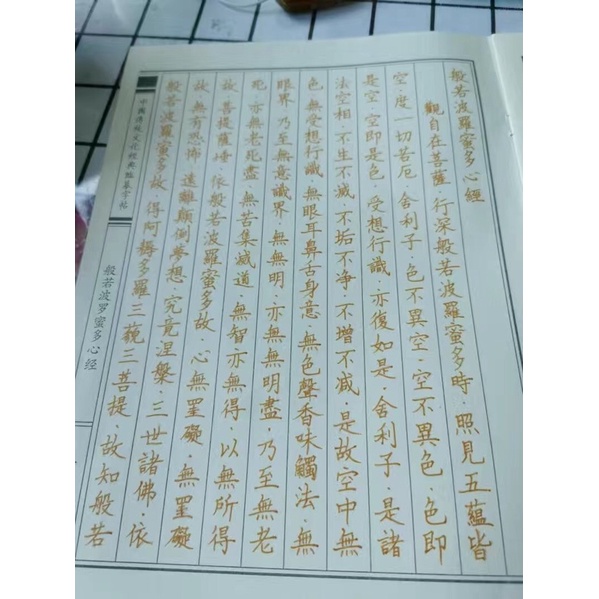 般若波羅蜜多心經
觀自在菩薩·行深般若波羅蜜多時·照見五蘊皆
空·度一切苦厄·舍利子·色不異空·空不異色·色即
是空·空即是色·受想行識·亦復如是·舍利子·是諸
法空相·不生不滅·不垢不净·不增不减·是故空中無
色·無受想行識·無眼耳鼻舌身意·無色聲香味觸法·無
眼界·乃至無意識界·無無明·亦無無明盡·乃至無老
死·亦無老死盡·無苦集滅道·無智亦無得·以無所得
故·菩提薩埵·依般若波羅蜜多故·心無罣礙·無罣礙
故·無有恐怖·遠離顛倒夢想·究竟涅槃·三世諸佛·依
般若波羅蜜多故·得阿耨多羅三藐三菩提·故知般若
中國傳統文化經典臨摹字帖
般若波罗蜜多心经